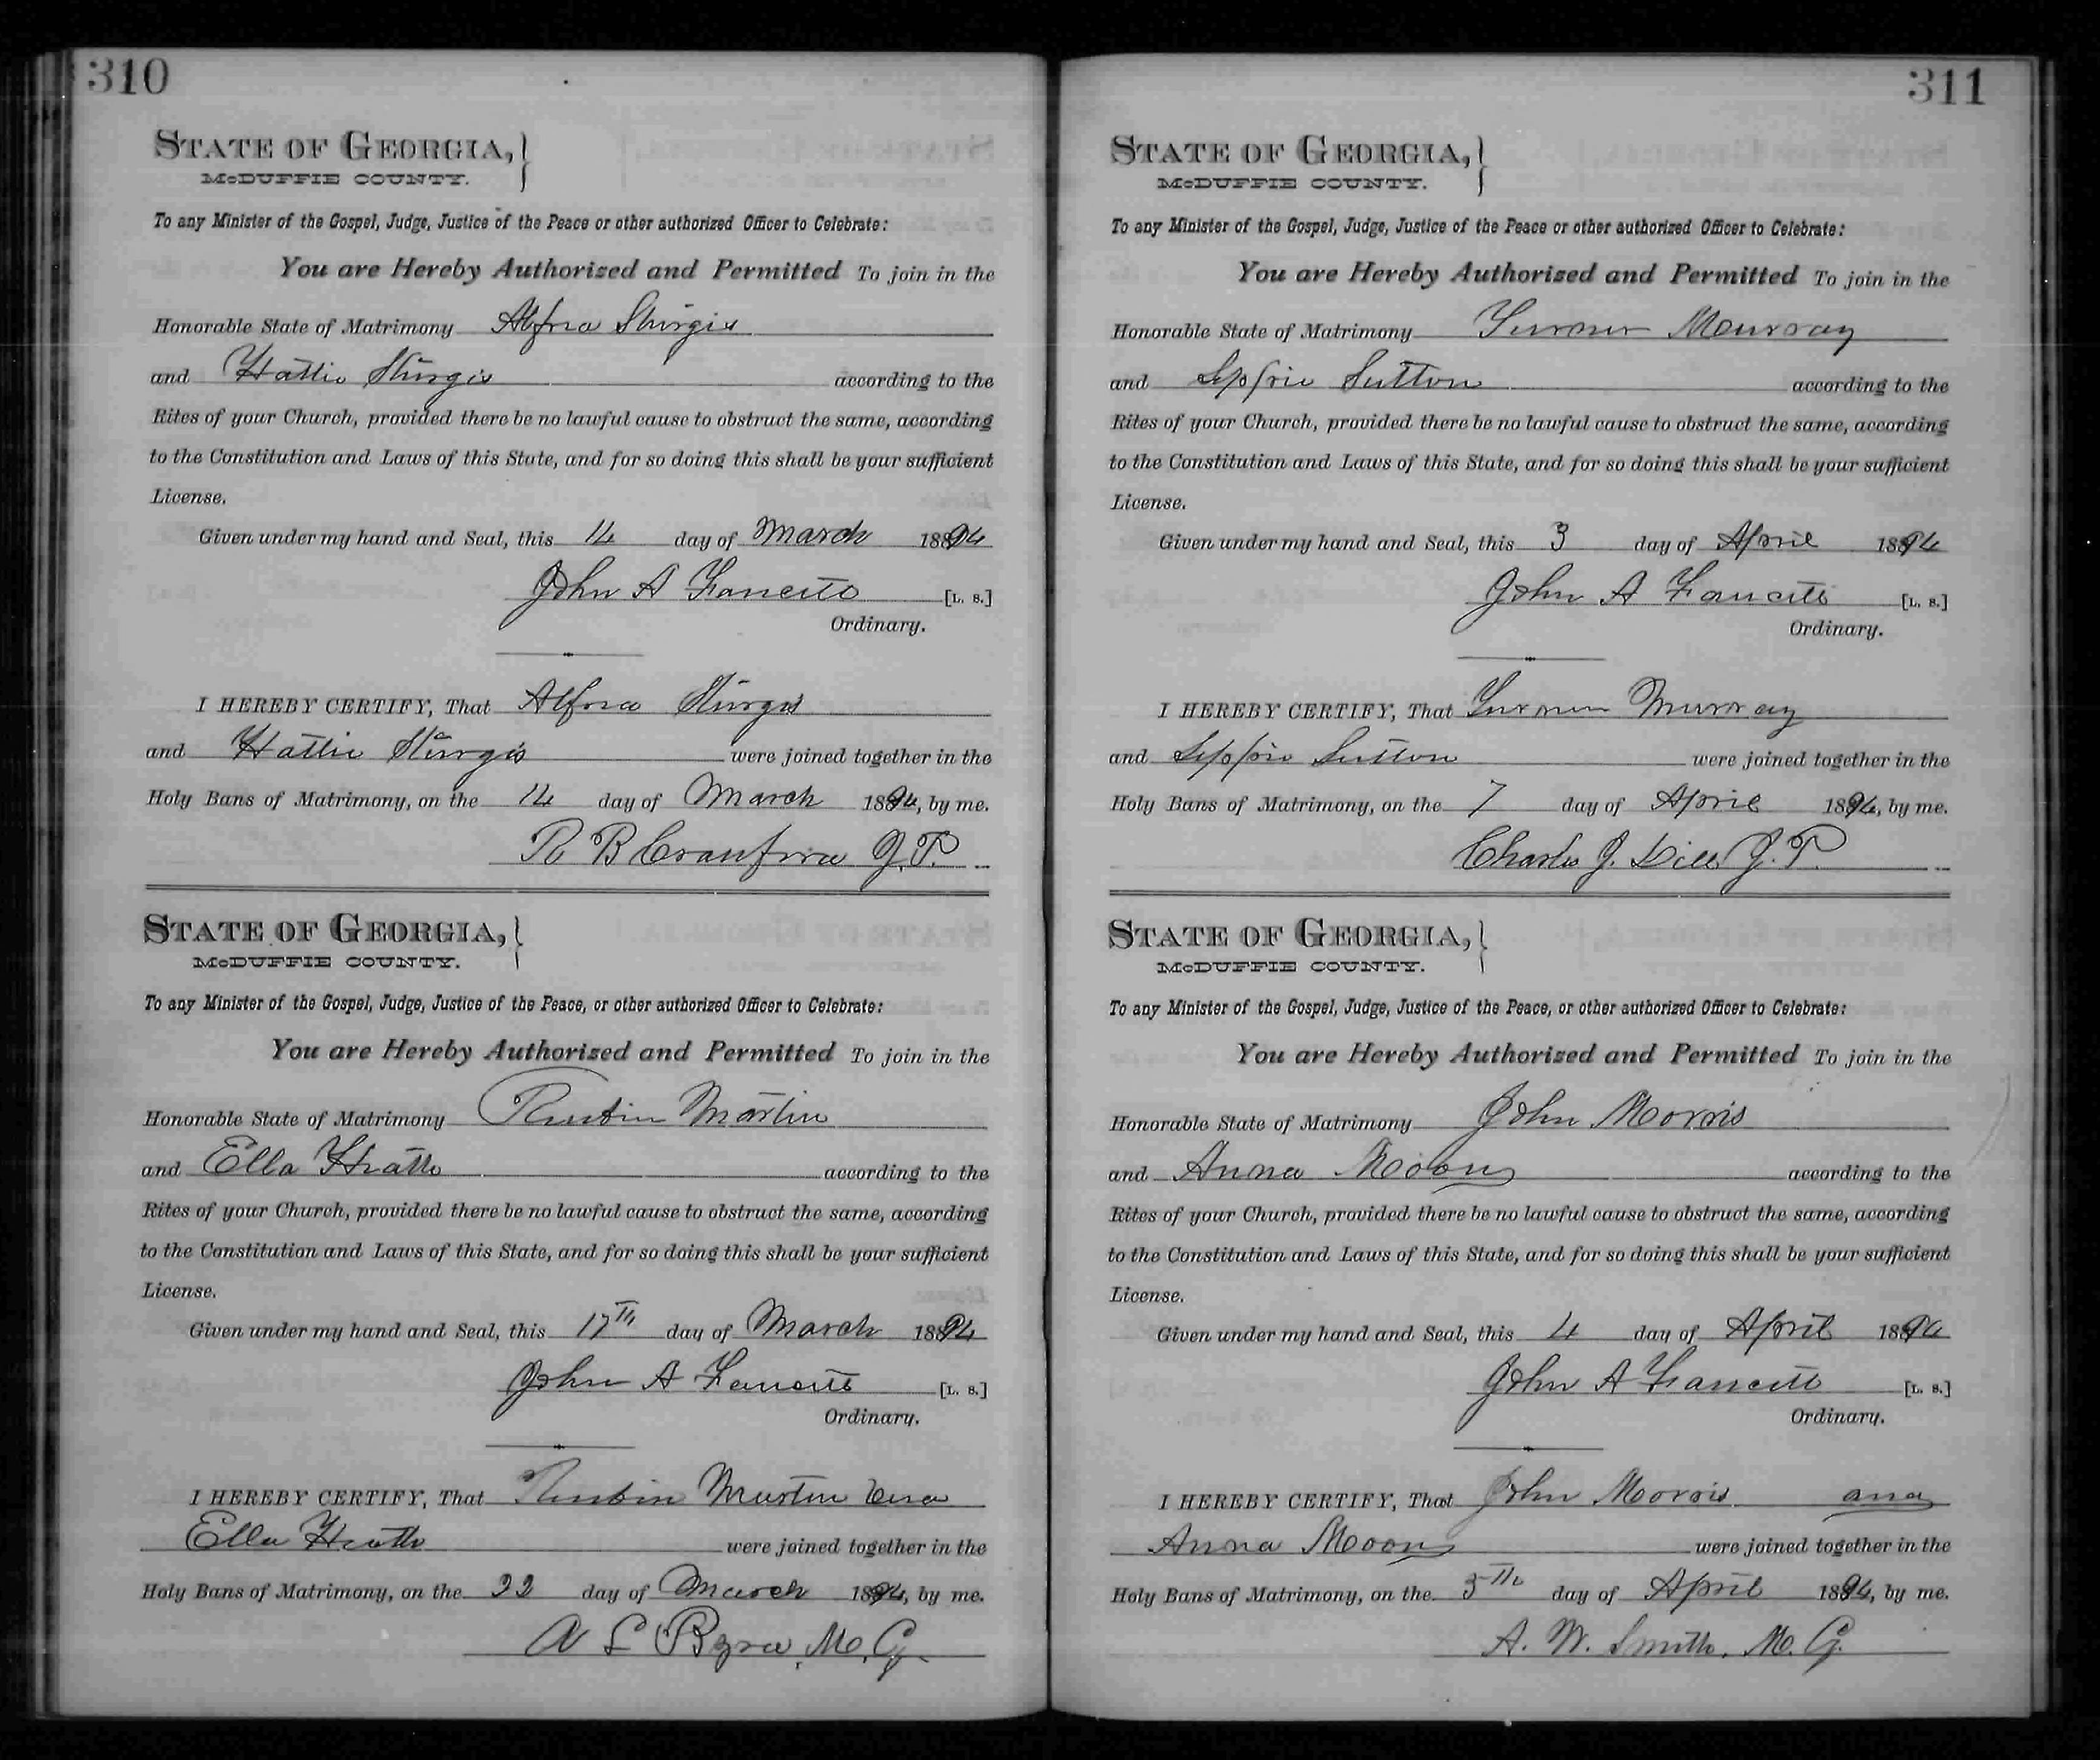 310
STATE OF GEORGIA,
McDUFFIE COUNTY.
To any Minister of the Gospel, Judge, Justice of the Peace or other authorized Officer to Celebrate:
You are Hereby Authorized and Permitted To join in the
Honorable State of Matrimony Alfred Sturgis
and Hattie Sturgis according to the
Rites of your Church, provided there be no lawful cause to obstruct the same, according
to the Constitution and Laws of this State, and for so doing this shall be your sufficient
License.
Given under my hand and Seal, this 14 day of March 1894
John A [L. S.]
Ordinary.
I HEREBY CERTIFY, That Alfred Sturgis
and Hattie Sturgis were joined together in the
Holy Bans of Matrimony, on the 14 day of March 1894, by me.
R B Cranford J.P.
STATE OF GEORGIA,
McDUFFIE COUNTY.
To any Minister of the Gospel, Judge, Justice of the Peace, or other authorized Officer to Celebrate:
You are Hereby Authorized and Permitted To join in the
Honorable State of Matrimony Rubin Martin
and Ella Heath according to the
Rites of your Church, provided there be no lawful cause to obstruct the same, according
to the Constitution and Laws of this State, and for so doing this shall be your sufficient
License.
Given under my hand and Seal, this 17th day of March 1894
John A [L. S.]
Ordinary.
I HEREBY CERTIFY, That Rubin Martin and
Ella Heath were joined together in the
Holy Bans of Matrimony, on the 22 day of March 1894, by me.
M. G.
311
STATE OF GEORGIA,
McDUFFIE COUNTY.
To any Minister of the Gospel, Judge, Justice of the Peace or other authorized Officer to Celebrate:
You are Hereby Authorized and Permitted To join in the
Honorable State of Matrimony Turner Murray
and Seppie Sutton according to the
Rites of your Church, provided there be no lawful cause to obstruct the same, according
to the Constitution and Laws of this State, and for so doing this shall be your sufficient
License.
Given under my hand and Seal, this 3 day of April 1894
John A [L. S.]
Ordinary.
I HEREBY CERTIFY, That Turner Murray
and Seppie Sutton were joined together in the
Holy Bans of Matrimony, on the 7 day of April 1894, by me.
Charles J. Dill J.P.
STATE OF GEORGIA,
McDUFFIE COUNTY.
To any Minister of the Gospel, Judge, Justice of the Peace, or other authorized Officer to Celebrate:
You are Hereby Authorized and Permitted To join in the
Honorable State of Matrimony John Morris
and Anna Moon according to the
Rites of your Church, provided there be no lawful cause to obstruct the same, according
to the Constitution and Laws of this State, and for so doing this shall be your sufficient
License.
Given under my hand and Seal, this 4 day of April 1894
John A [L. S.]
Ordinary.
I HEREBY CERTIFY, That John Morris and
Anna Moon were joined together in the
Holy Bans of Matrimony, on the 5th day of April 1894, by me.
A. W. Smith, M. G.